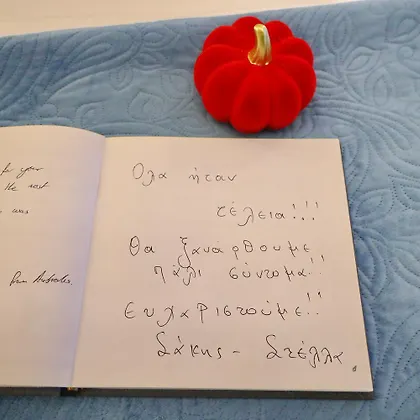 your
the rest
was
from Australia.
Ολα ήταν
τέλεια!!!
Θα ξαναρθουμε
πάλι σύντομα!!
Ευχαριστούμε!!
Σάκης - Στέλλα